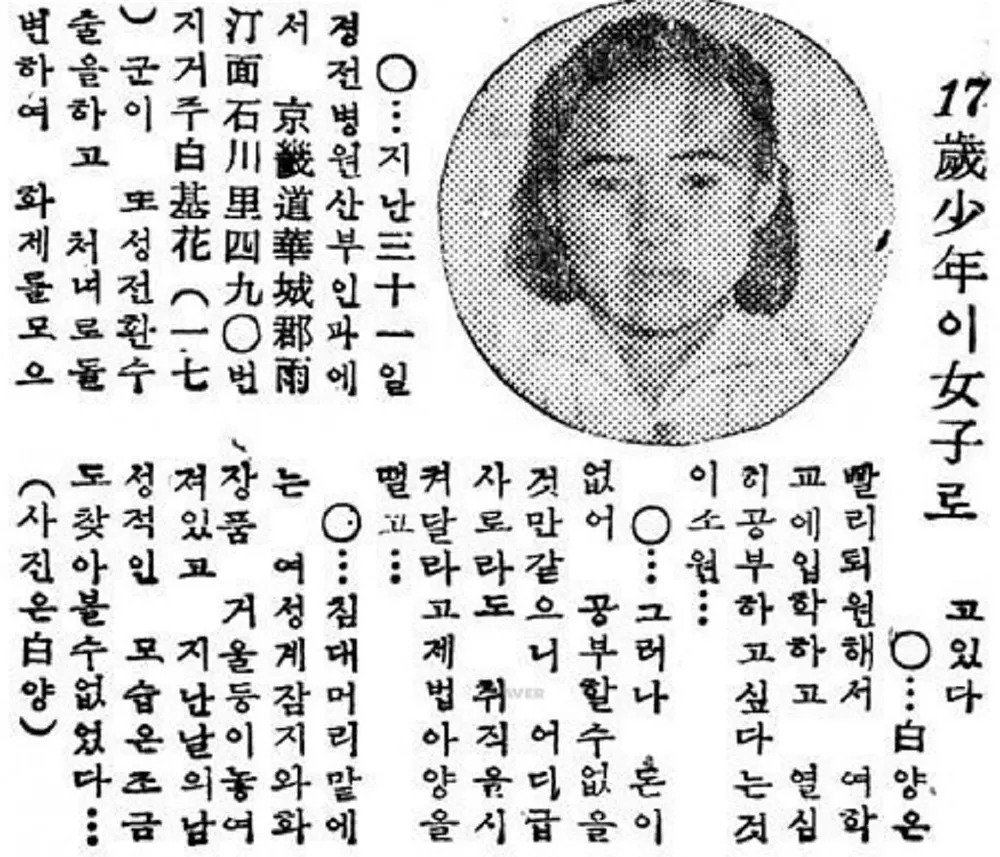 17歲少年이女子로
○…지난三十一일
경전병원산부인과에
서 京畿道華城郡雨
汀面石川里四九○번
지거주白基花(一七
)군이 또성전환수
출을하고 처녀로돌
변하여 화제를모으
고있다
○…白양은
빨리퇴원해서 여학
교에입학하고 열심
히공부하고싶다는것
이소원…
○…그러나 돈이
없어 공부할수없을
것만같으니 어디급
사로라도 취직을시
켜달라고제법아양을
떨고…
○…침대머리맡에
는 여성계잡지와화
장품 거울등이놓여
져있고 지난날의남
성적인 모습은조금
도찾아볼수없었다…
(사진은白양)